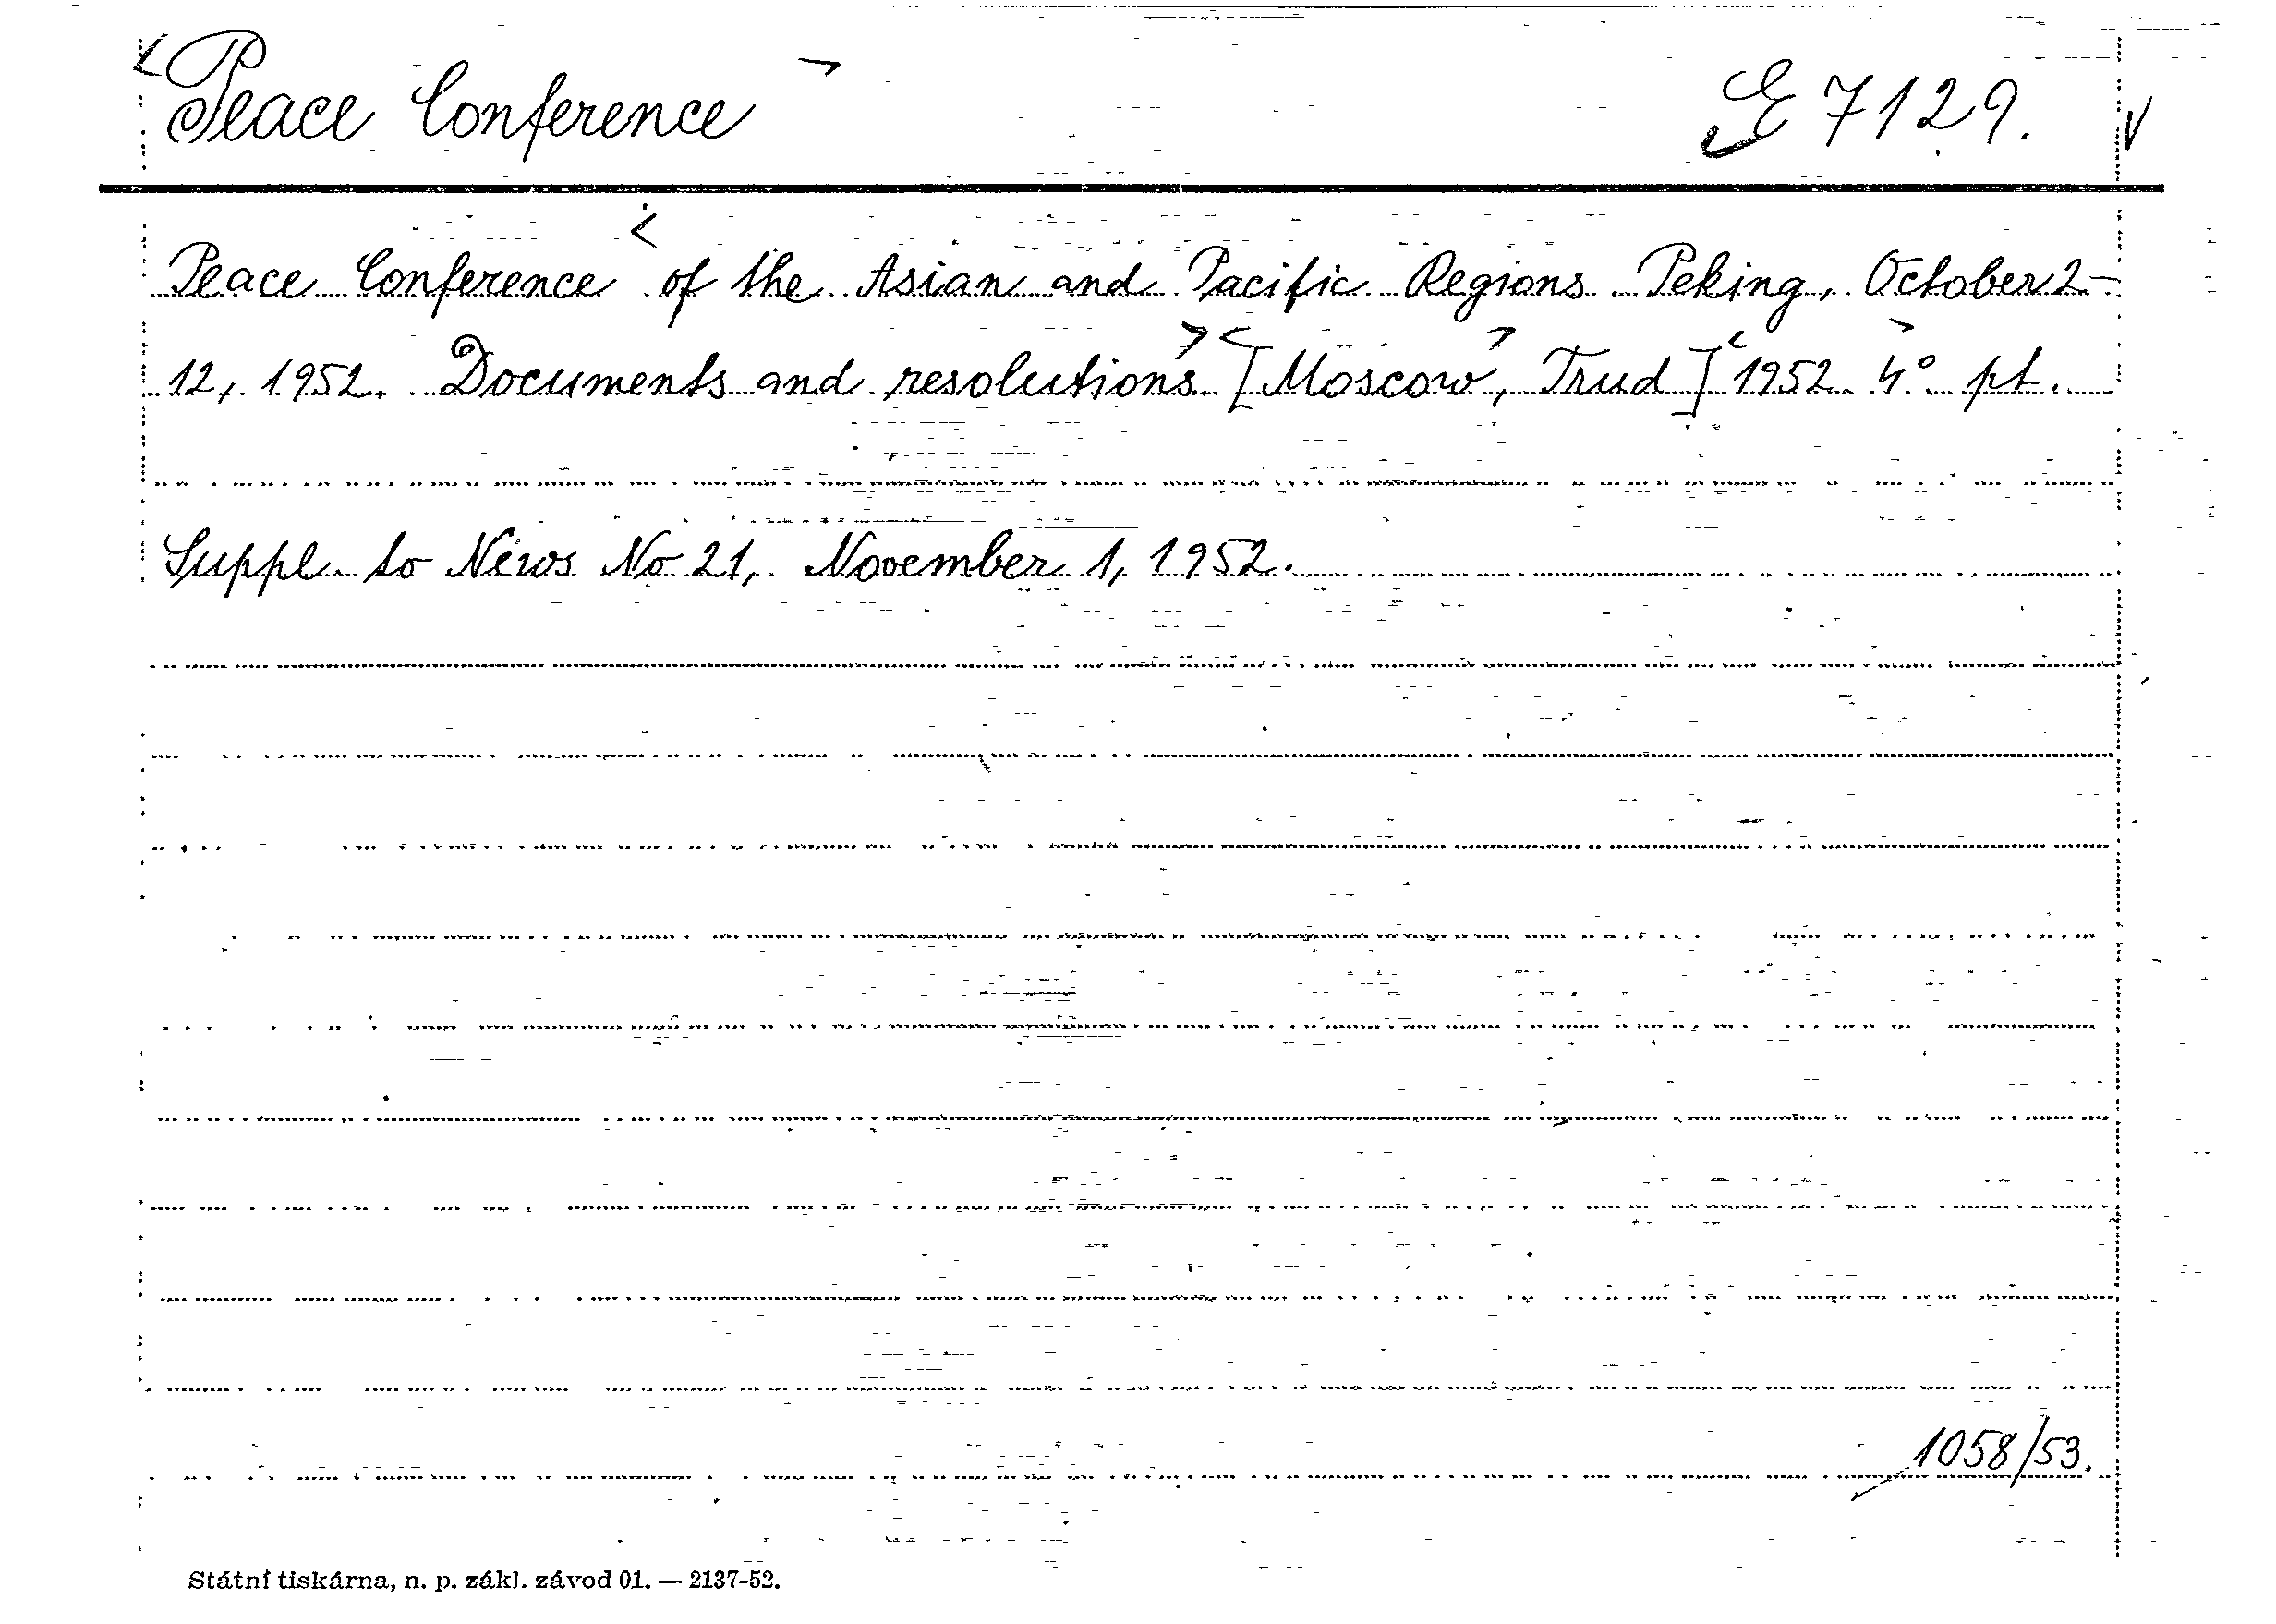 Peace Conference
E 7129.
Peace Conference of the Asian and Pacific Regions Peking, October 2-
12, 1952. Documents and resolutions. [Moscow, Trud] 1952. 4° pt.
Suppl. to News No 21, November 1, 1952.
1058/53.
Státní tiskárna, n. p. zákl. závod 01. — 2137-52.